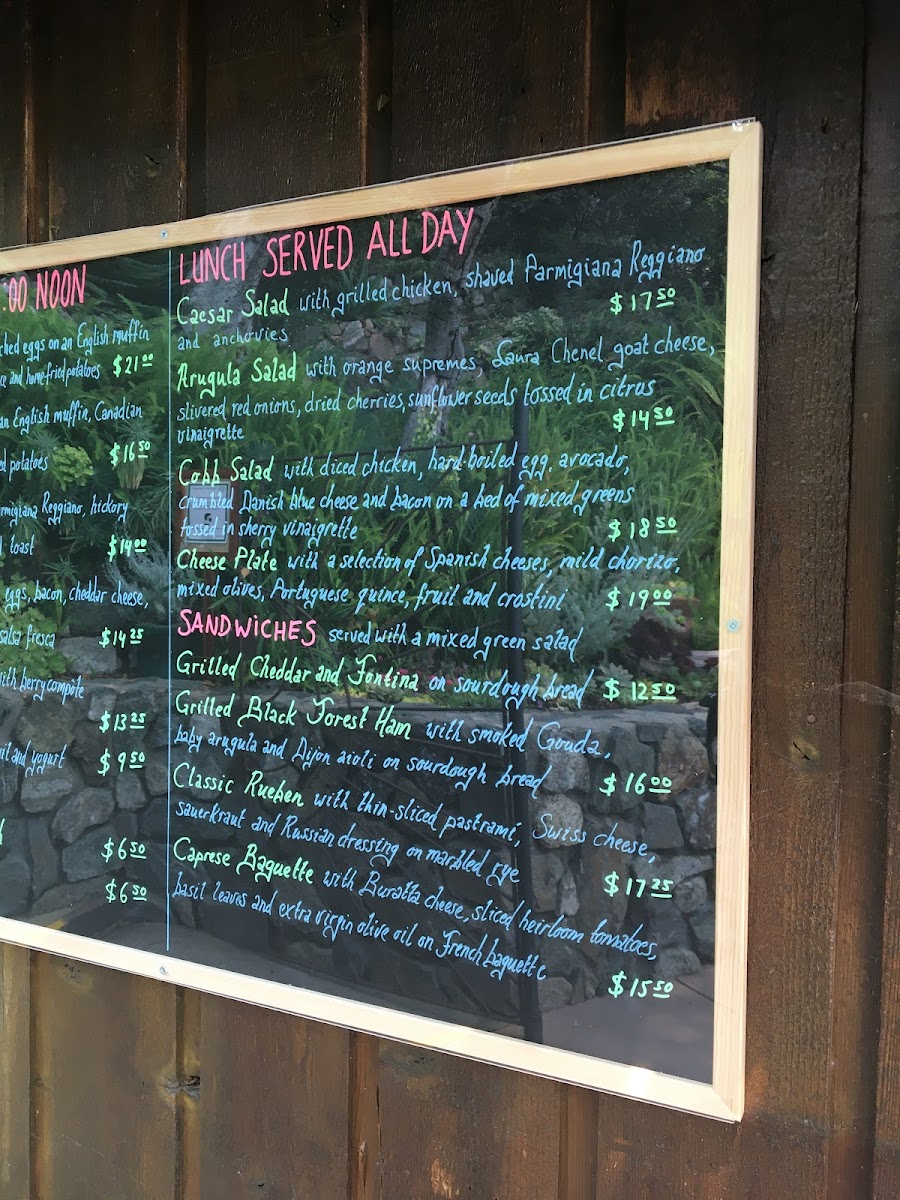 :00 NOON
ched eggs on an English muffin
ce and home fried potatoes $21 00
an English muffin, Canadian
$16 50
ed potatoes
rmigiana Reggiano, hickory
toast $14 00
eggs, bacon, cheddar cheese,
salsa fresca $14 25
with berry compote
$13 25
uit and yogurt $9 50
$6 50
$6 50
LUNCH SERVED ALL DAY
Caesar Salad with grilled chicken, shaved Parmigiana Reggiano
and anchovies $17 50
Arugula Salad with orange supremes, Laura Chenel goat cheese,
slivered red onions, dried cherries, sunflower seeds tossed in citrus
vinaigrette $14 50
Cobb Salad with diced chicken, hard boiled egg, avocado,
crumbled Danish blue cheese and bacon on a bed of mixed greens
tossed in sherry vinaigrette $18 50
Cheese Plate with a selection of Spanish cheeses, mild chorizo,
mixed olives, Portuguese quince, fruit and crostini $19 00
SANDWICHES served with a mixed green salad
Grilled Cheddar and Fontina on sourdough bread $12 50
Grilled Black Forest Ham with smoked Gouda,
baby arugula and Dijon aioli on sourdough bread $16 00
Classic Rueben with thin-sliced pastrami, Swiss cheese,
sauerkraut and Russian dressing on marbled rye $17 25
Caprese Baguette with Buratta cheese, sliced heirloom tomatoes,
basil leaves and extra virgin olive oil on French baguette
$15 50